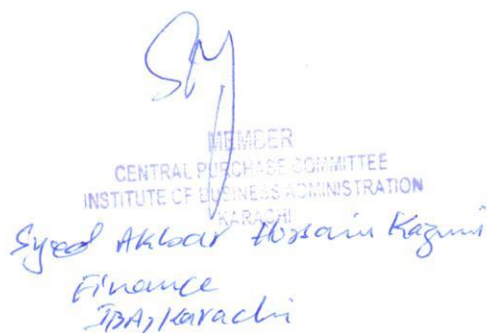 MEMBER
CENTRAL PURCHASE COMMITTEE
INSTITUTE OF BUSINESS ADMINISTRATION
KARACHI
Syeed Akbar Hussain Kazmi
Finance
IBA, Karachi